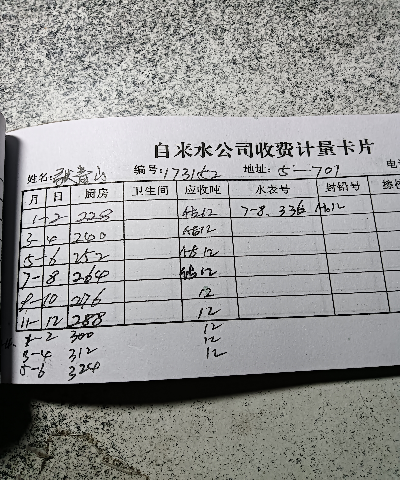 自来水公司收费计量卡片
姓名: 青山 编号: 173152 地址: 5-701
月 日 厨房 卫生间 应收吨 水表号 封铅号
1-2 228 12 7-8. 336 12
3-4 240 12
5-6 252 12
7-8 264 12
9-10 276 12
11-12 288 12
1-2 300 12
3-4 312 12
5-6 324 12